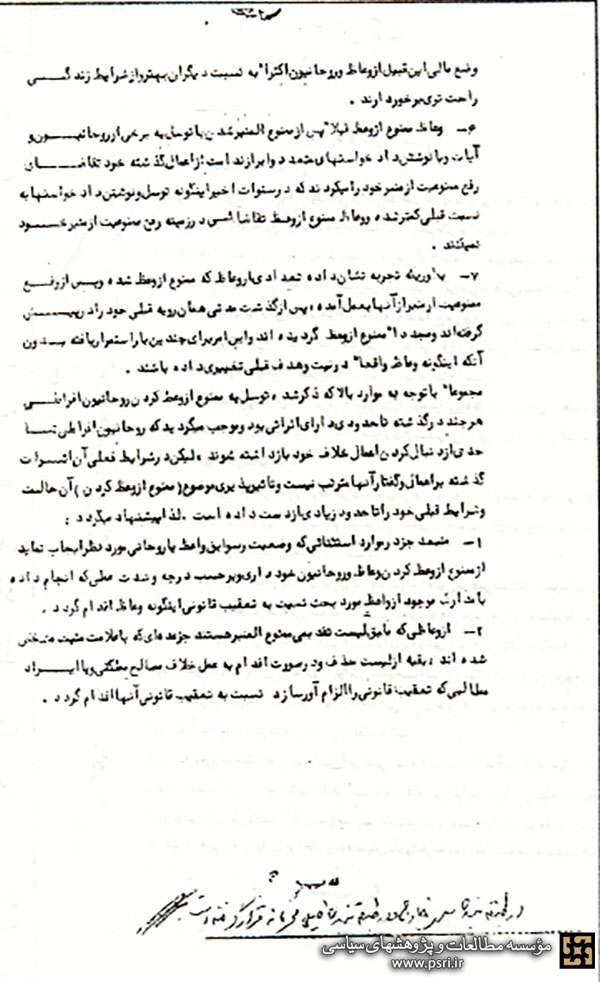 وضع مالی این قبیل از وعاظ و روحانیون اکثراً به نسبت دیگران بهتر و از شرایط زندگی
راحت تری برخوردارند .
۶- وعاظ ممنوع از وعظ قبلا پس از ممنوع المنبر شدن با توسل به برخی از روحانیون و
آیات و با نوشتن دادخواستهای متعدد و ابراز ندامت از اعمال گذشته خود تقاضای
رفع ممنوعیت از منبر خود را میکردند که در سنوات اخیر اینگونه توسل و نوشتن دادخواستها به
نسبت قبلی کمتر شده و وعاظ ممنوع از وعظ تقاضائی در زمینه رفع ممنوعیت از منبر خود
نمیکنند .
۷- تجربه نشان داده تعدادی از وعاظ که ممنوع از وعظ شده و پس از رفع
ممنوعیت از آنها بعمل آمده ، پس از گذشت مدتی همان رویه قبلی خود را در پیش
گرفته اند و مجدداً ممنوع از وعظ گردیده اند و این امر برای چندین بار استمرار یافته بدون
آنکه اینگونه وعاظ واقعاً در نیت و هدف قبلی تغییری داده باشند .
مجموعاً با توجه به موارد بالا که ذکر شد ، توسل به ممنوع از وعظ کردن روحانیون افراطی
هر چند در گذشته تا حدودی دارای اثراتی بود و موجب میگردید که روحانیون افراطی تا
حدی از دنبال کردن اعمال خلاف خود بازداشته شوند ، لیکن در شرایط فعلی آن اثرات
گذشته بر اعمال و گفتار آنها مترتب نیست و تاثیرپذیری موضوع (ممنوع از وعظ کردن) آن حالت
و شرایط قبلی خود را تا حدود زیادی از دست داده است . لذا پیشنهاد میگردد :
۱- جز در موارد استثنائی که وضعیت و سوابق واعظ یا روحانی مورد نظر ایجاب نماید
از ممنوع از وعظ کردن وعاظ و روحانیون خودداری و بر حسب درجه و شدت عملی که انجام داده
با مدارک موجود از واعظ مورد بحث نسبت به تعقیب قانونی اینگونه وعاظ اقدام گردد .
۲- از وعاظی که طبق لیست تقدیمی ممنوع المنبر هستند جز عده ای که با علامت مثبت مشخص
شده اند ، بقیه از لیست حذف و در صورت اقدام به عمل خلاف مصالح مملکتی و یا ایراد
مطالبی که تعقیب قانونی را الزام آور سازد نسبت به تعقیب قانونی آنها اقدام گردد .
قرار گرفته است
مؤسسه مطالعات و پژوهشهای سیاسی
www.psri.ir